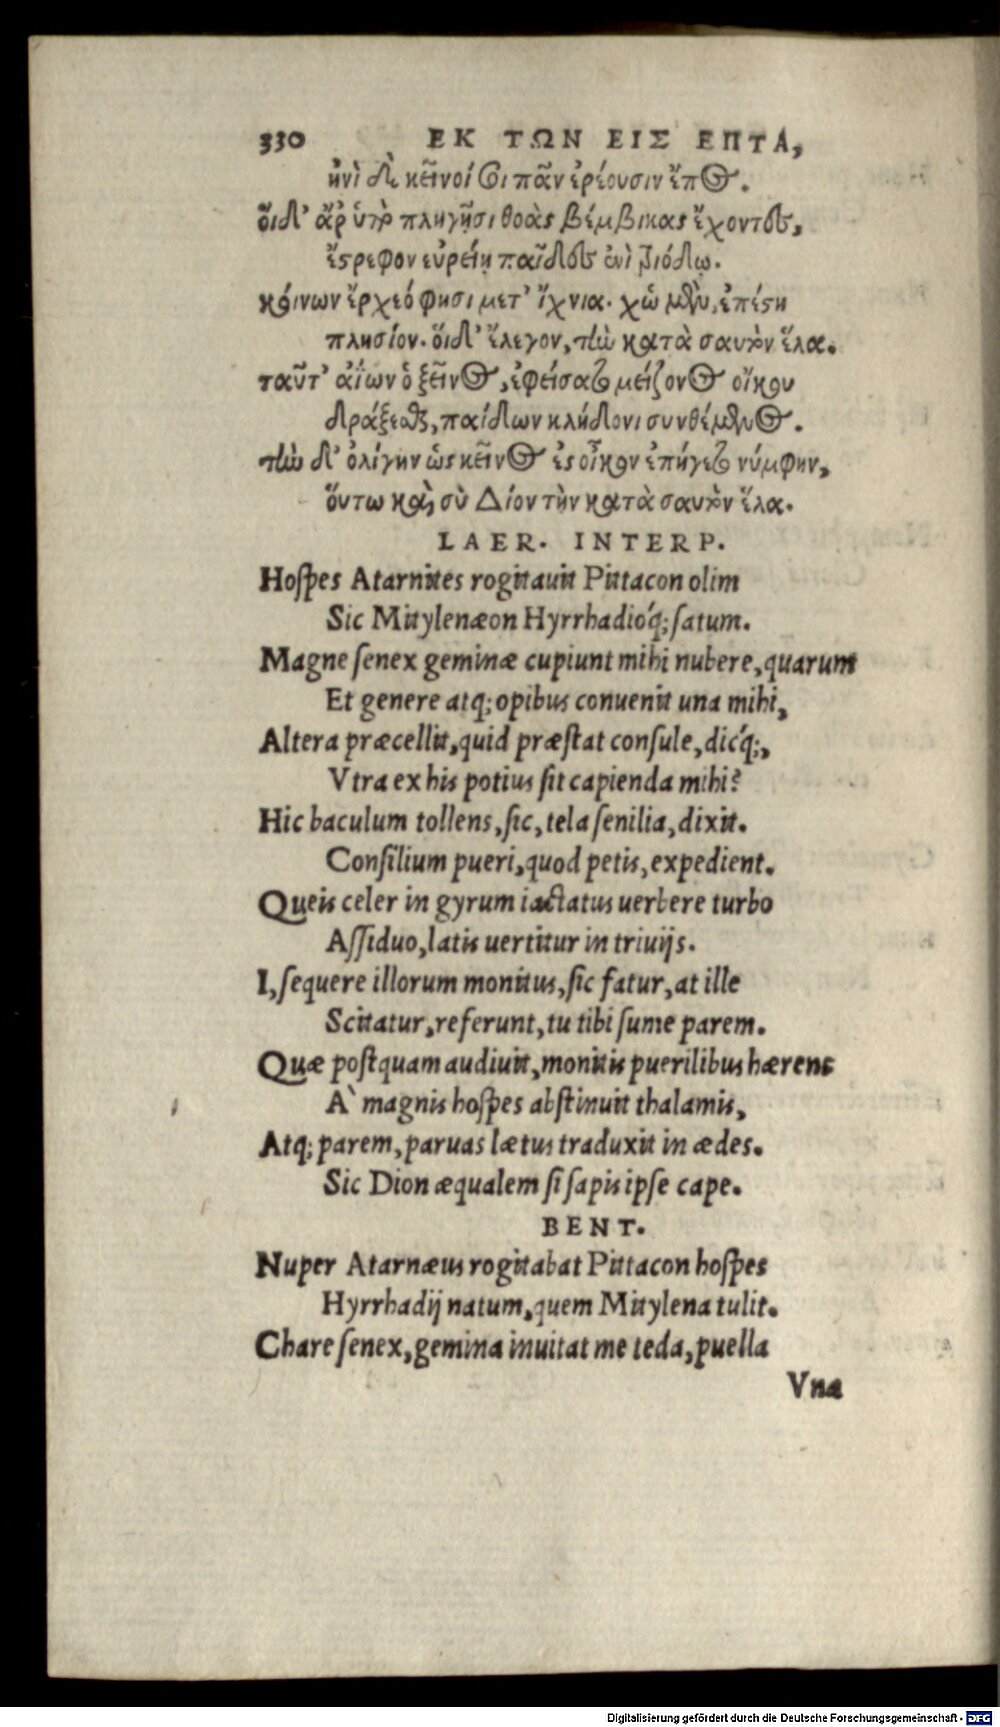 330 ΕΚ ΤΩΝ ΕΙΣ ΕΠΤΑ,
ἠνὶ δὲ κεῖνοί σοι πᾶν ἐρέουσιν ἔπος.
οἵδ' ἄρ ὑπὸ πληγῇσι θοὰς βέμβικας ἔχοντες,
ἔστρεφον εὐρείῃ παῖδες ἐνὶ τριόδῳ.
κείνων ἔρχεό φησι μετ' ἴχνια. χὠ μὲν, ἐπέστη
πλησίον. οἵδ' ἔλεγον, τὴν κατὰ σαυτὸν ἔλα.
ταῦτ' ἀΐων ὁ ξεῖνος, ἐφείσατο μείζονος οἴκου
δράξεσθαι, παίδων κληδόνι συνθέμενος.
τὴν δ' ὀλίγην ὡς κεῖνος ἐς οἶκον ἐπήγετο νύμφην,
ὅυτω καὶ, σὺ Δίον τὴν κατὰ σαυτὸν ἔλα.
LAER. INTERP.
Hospes Atarnites rogitauit Pittacon olim
Sic Mitylenæon Hyrrhadió́q; satum.
Magne senex geminæ cupiunt mihi nubere, quarum
Et genere atq; opibus conuenit una mihi,
Altera præcellit, quid præstat consule, dicq́;,
Vtra ex his potius sit capienda mihi?
Hic baculum tollens, sic, tela senilia, dixit.
Consilium pueri, quod petis, expedient.
Queis celer in gyrum iactatus uerbere turbo
Assiduo, latis uertitur in triuijs.
I, sequere illorum monitus, sic fatur, at ille
Scitatur, referunt, tu tibi sume parem.
Quæ postquam audiuit, monitis puerilibus hærens
A` magnis hospes abstinuit thalamis,
Atq; parem, paruas lætus traduxit in ædes.
Sic Dion æqualem si sapis ipse cape.
BENT.
Nuper Atarnæus rogitabat Pittacon hospes
Hyrrhadij natum, quem Mitylena tulit.
Chare senex, gemina inuitat me teda, puella
Vna
Digitalisierung gefördert durch die Deutsche Forschungsgemeinschaft - DFG